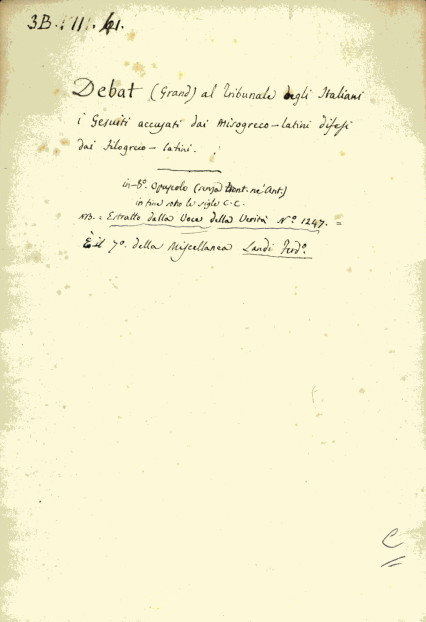 3B. VII. 41.
Debat (Grand) al Tribunale degli Italiani
i Gesuiti accusati dai Misogreco-latini difesi
dai Filogreco-latini.
in-8º. Opuscolo (senza front. nè Ant.)
in fine sotto le sigle C.C.
NB. = Estratto dalla Voce della Verità Nº 1247. =
È il 7º. della Miscellanea Landi Ferdº.
C